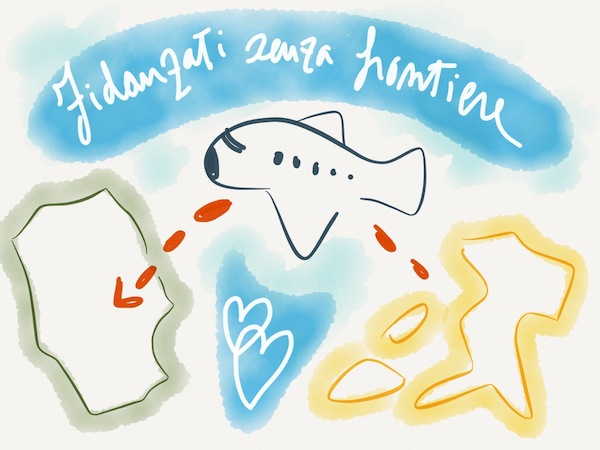 Fidanzati senza frontiere